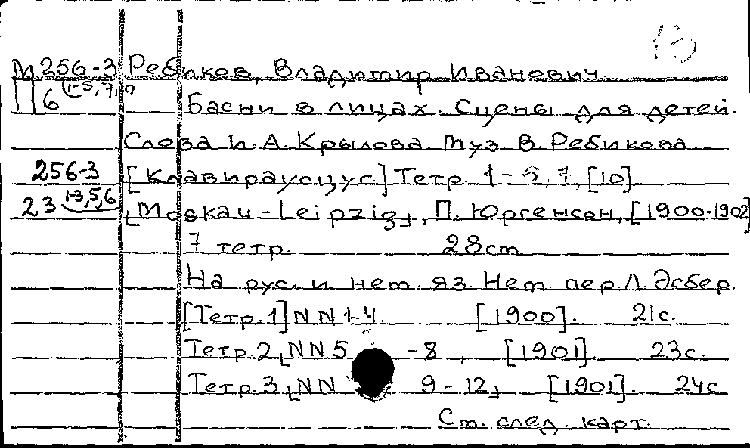 13
М 256-3 Ребиков, Владимир Иванович
П 6 1-5,7,10
Басни в лицах. Сцены для детей.
Слова И.А. Крылова муз. В. Ребикова
256-3 [Клавираусцуг] Тетр. 1-5, 7, [10]
23 1-3,5,6 Moskau-Leipzig, П. Юргенсон, [1900-1902]
7 тетр. 28cm
На рус. и нем. яз. Нем. пер. Л. Эсбер.
[Тетр. 1] NN 1-4. [1900]. 21с.
Тетр. 2, NN 5 -8, [1901]. 23с.
Тетр. 3, NN 9-12, [1901]. 24с
См. след. карт.